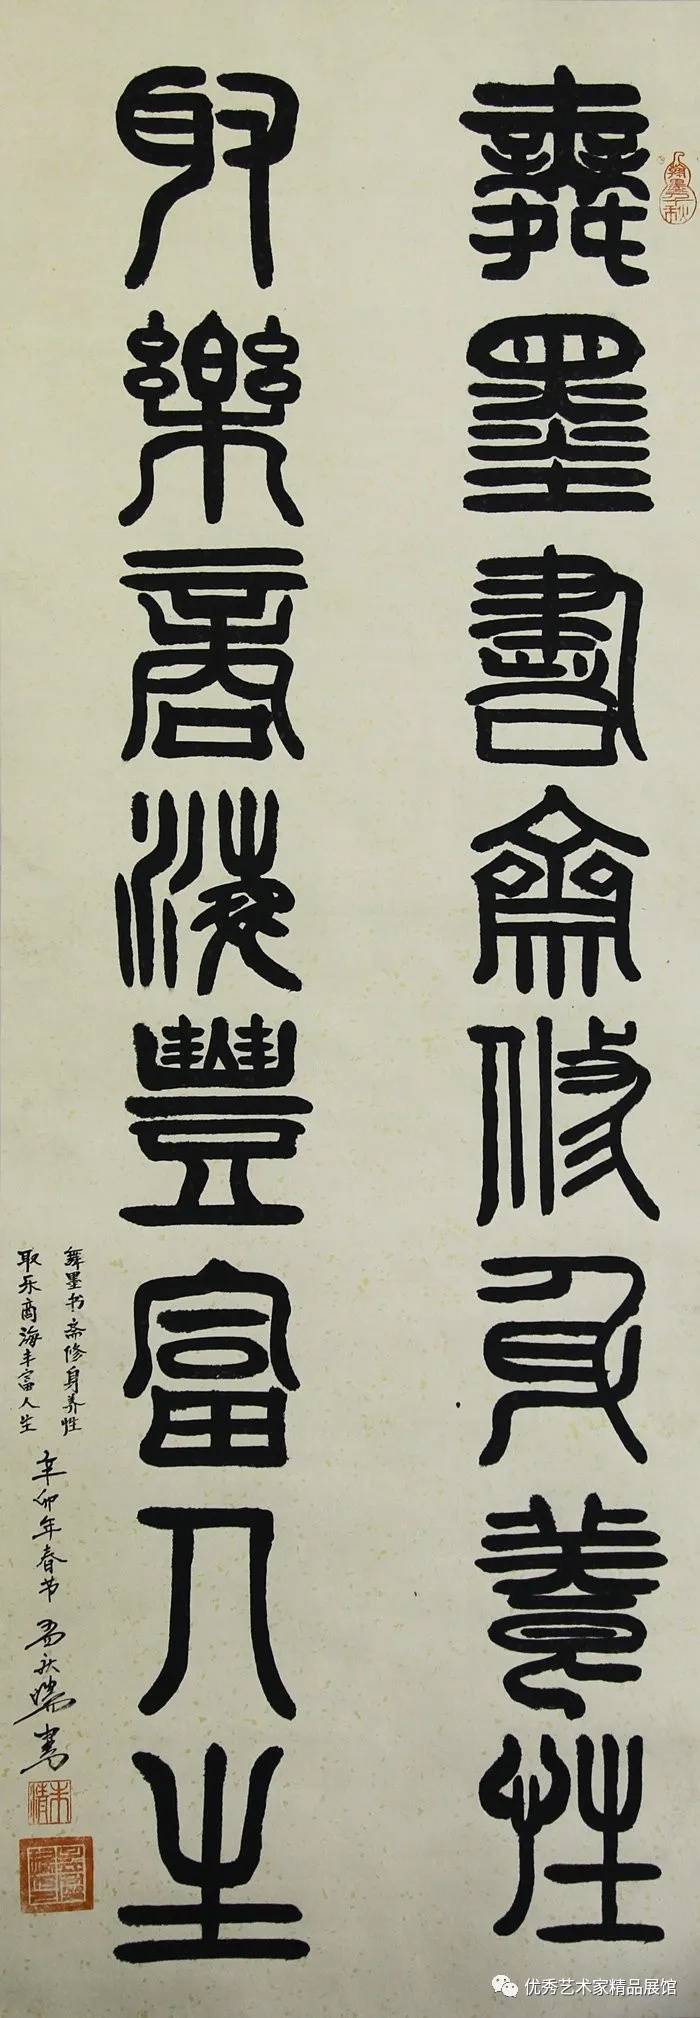 舞墨書齋修身養性
取樂商海豐富人生
舞墨书斋修身养性
取乐商海丰富人生
辛卯年春节
書
翰墨千秋
优秀艺术家精品展馆